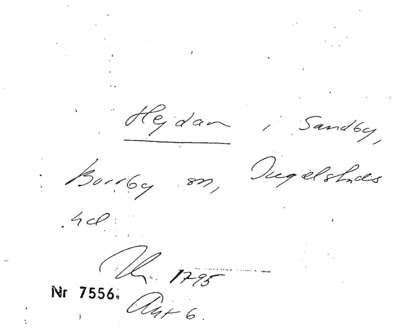 Hejdan i Sandby,
Borrby sn, Ingelstads
hd
1795
Nr 7556.
Akt 6.